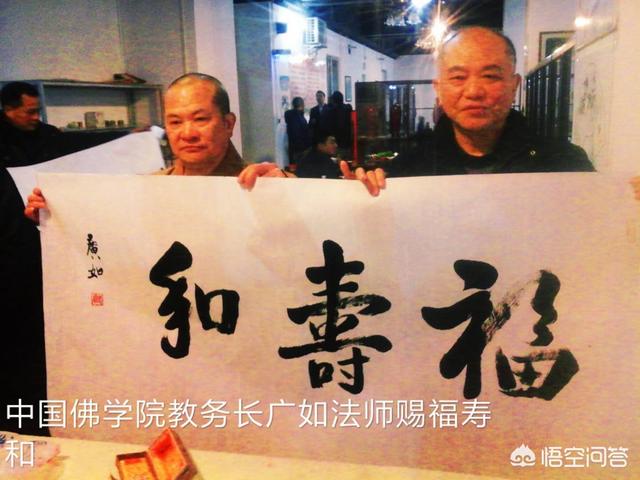 福壽和
廣如
中国佛学院教务长广如法师赐福寿
和
悟空问答